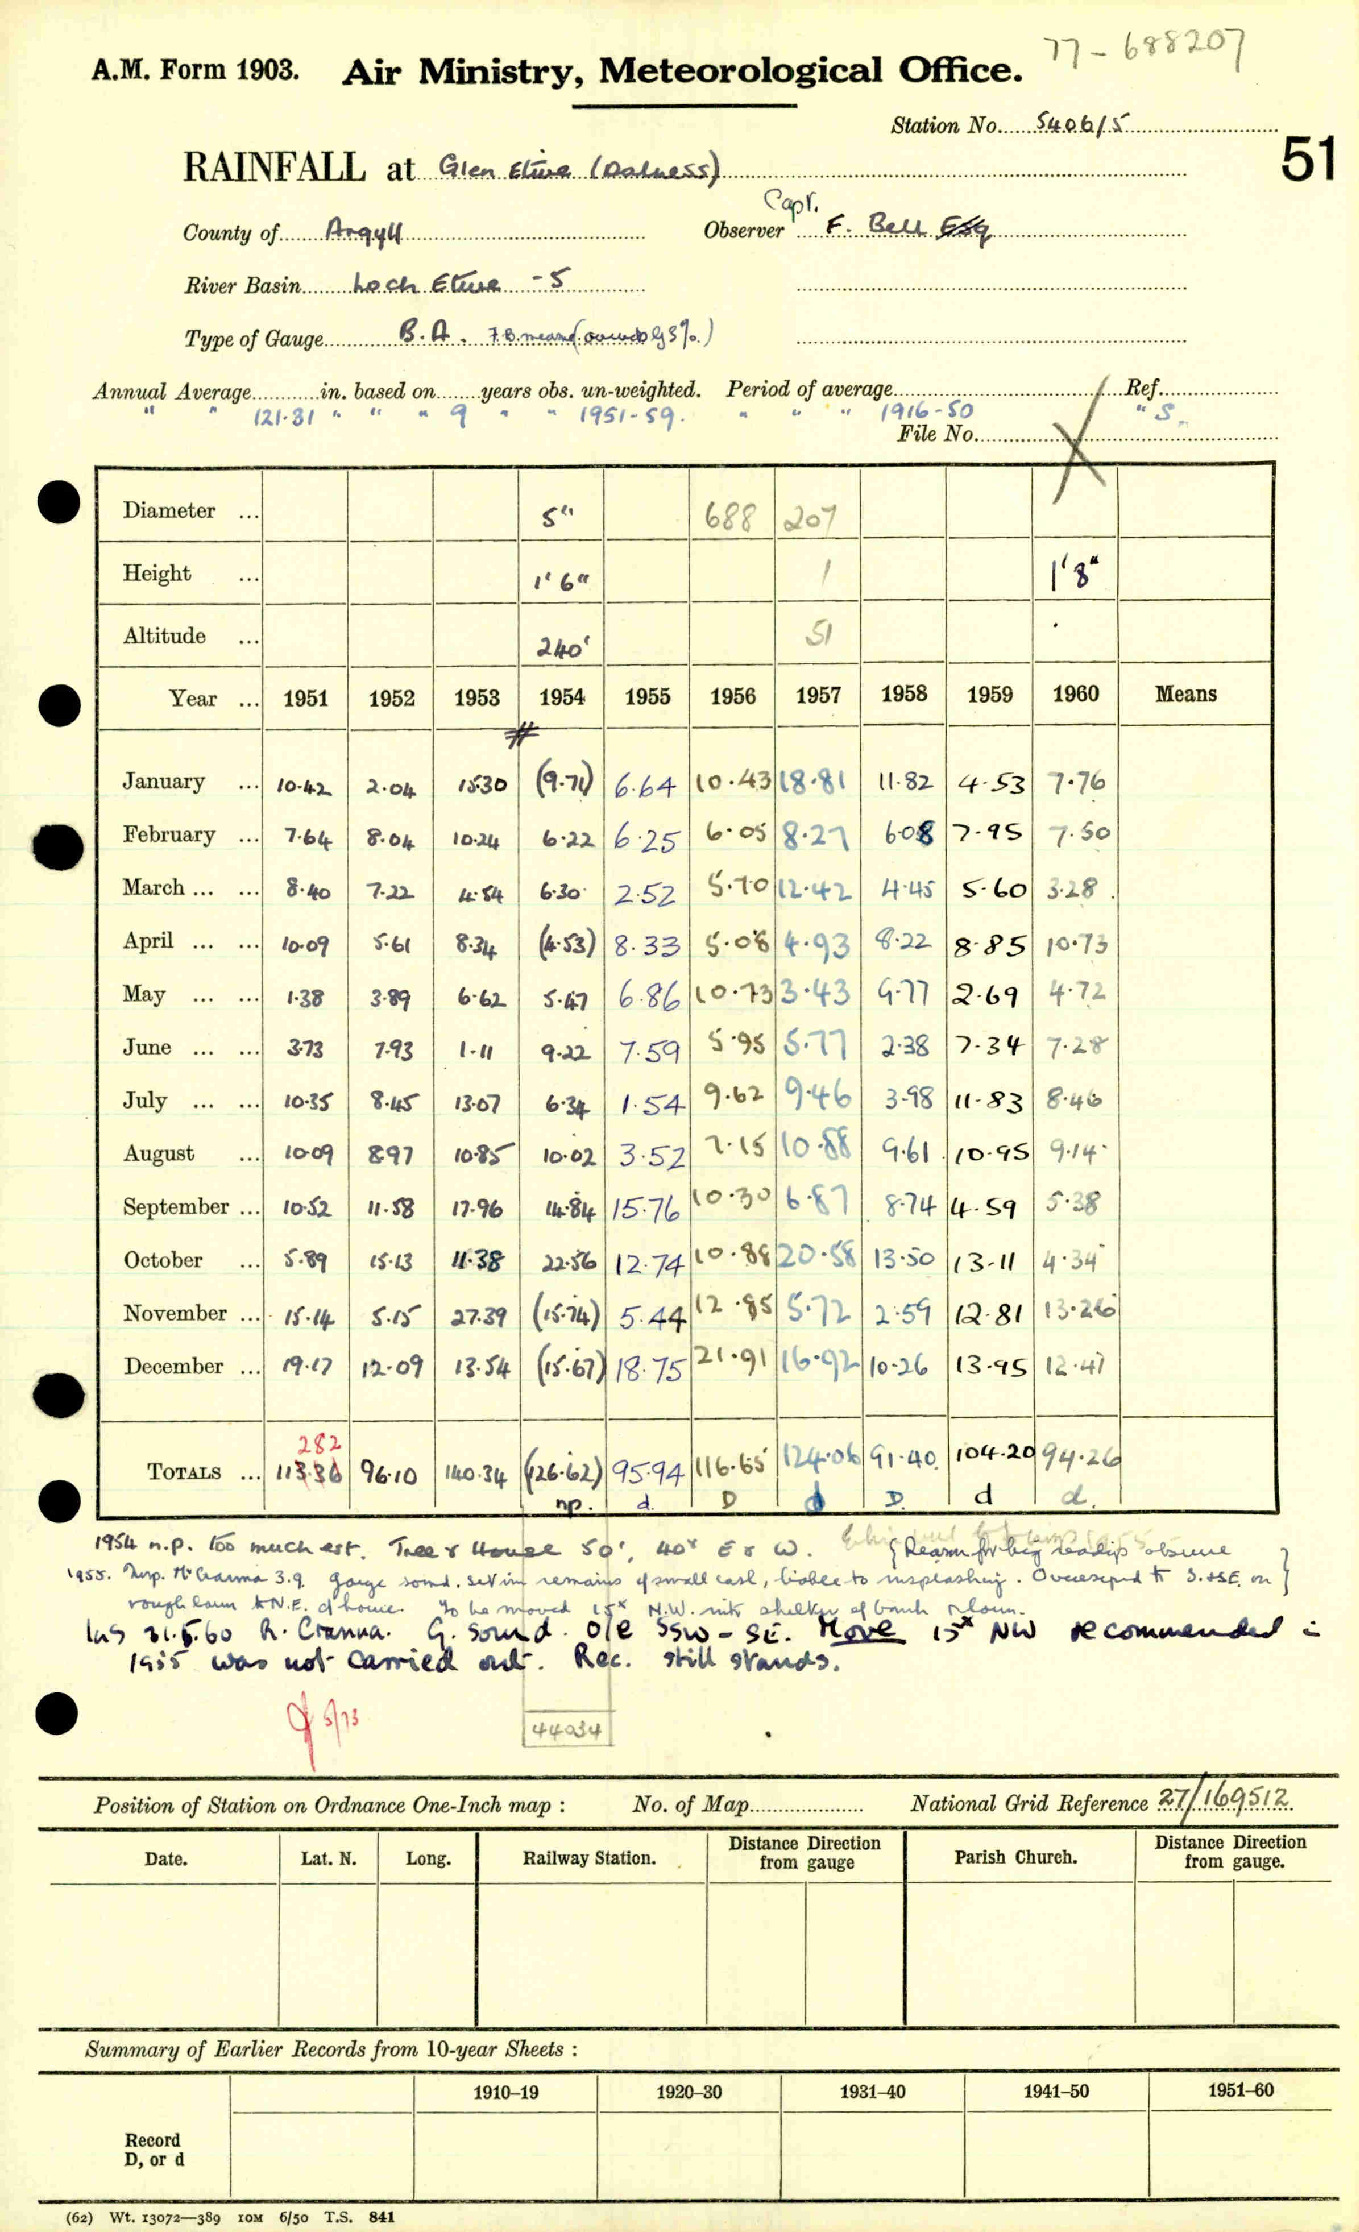 77 - 688207
A.M. Form 1903. Air Ministry, Meteorological Office.
Station No. 5406/5
51
RAINFALL at Glen Etive (Dalness)
Capt.
County of Argyll Observer F. Bell Esq
River Basin Loch Etive - 5
Type of Gauge B.A. F.B. means
Annual Average in. based on years obs. un-weighted. Period of average Ref.
" " 121.31 " " " 9 " " 1951-59. " " " 1916-50 " S.
File No.
Diameter ... 5" 688 207
Height ... 1' 6" 1 1' 8"
Altitude ... 240' 51
Year ... 1951 1952 1953 1954 1955 1956 1957 1958 1959 1960 Means
#
January ... 10.42 2.04 15.30 (9.71) 6.64 10.43 18.81 11.82 4.53 7.76
February ... 7.64 8.04 10.24 6.22 6.25 6.05 8.27 6.08 7.95 7.50
March ... ... 8.40 7.22 4.54 6.30 2.52 5.70 12.42 4.45 5.60 3.28
April ... ... 10.09 5.61 8.34 (4.53) 8.33 5.08 4.93 8.22 8.85 10.73
May ... ... 1.38 3.89 6.62 5.47 6.86 10.73 3.43 9.77 2.69 4.72
June ... ... 3.73 7.93 1.11 9.22 7.59 5.95 5.77 2.38 7.34 7.28
July ... ... 10.35 8.45 13.07 6.34 1.54 9.62 9.46 3.98 11.83 8.46
August ... 10.09 8.97 10.85 10.02 3.52 7.15 10.88 9.61 10.95 9.14
September ... 10.52 11.58 17.96 14.84 15.76 10.30 6.87 8.74 4.59 5.38
October ... 5.89 15.13 11.38 22.56 12.74 10.88 20.58 13.50 13.11 4.34
November ... 15.14 5.15 27.39 (15.74) 5.44 12.85 5.72 2.59 12.81 13.26
December ... 19.17 12.09 13.54 (15.67) 18.75 21.91 16.92 10.26 13.95 12.41
282
TOTALS ... 113.36 96.10 140.34 (126.62) 95.94 116.65 124.06 91.40 104.20 94.26
n.p. d. D d D. d d.
1954 n.p. too much est. Tree & House 50', 40' E & W. {Reason for big readings obscure
1955. Insp. McCranna 3.9. gauge sound. set in remains of small cask, liable to insplashing. Overexposed to S. & SE. on }
rough lawn to N.E. of house. To be moved 15x N.W. into shelter of bank
Ins 31.5.60 R. Cranna. G. sound. O/e SSW - SE. Move 15x NW recommended in
1955 was not carried out. Rec. still stands.
5/73
44034
Position of Station on Ordnance One-Inch map : No. of Map National Grid Reference 27/169512
Date. Lat. N. Long. Railway Station. Distance Direction from gauge Parish Church. Distance Direction from gauge.
Summary of Earlier Records from 10-year Sheets :
1910–19 1920–30 1931–40 1941–50 1951–60
Record
D, or d
(62) Wt. 13072—389 10M 6/50 T.S. 841